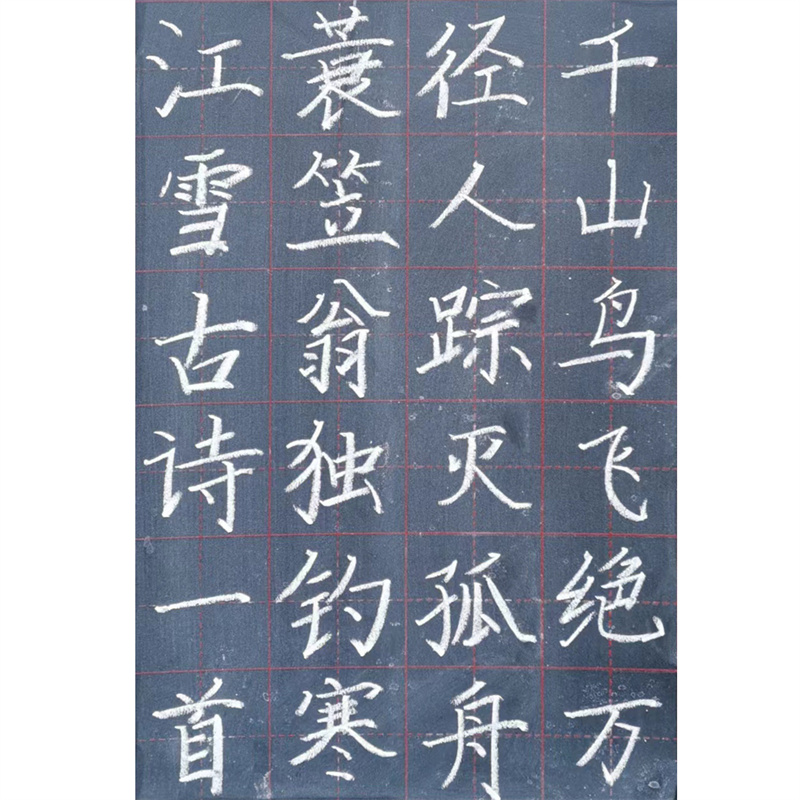 千山鸟飞绝万
径人踪灭孤舟
蓑笠翁独钓寒
江雪古诗一首